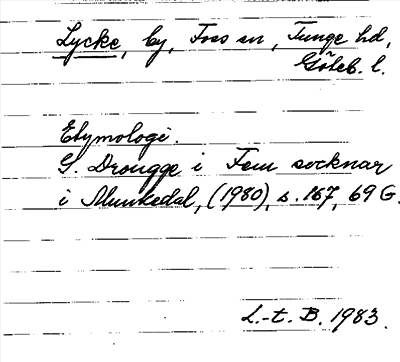 Lycke, by, Foss sn, Tunge hd,
Göteb. l.
Etymologi.
G. Drougge i Fem socknar
i Munkedal, (1980), s. 167, 69 G.
L.-t. B. 1983.